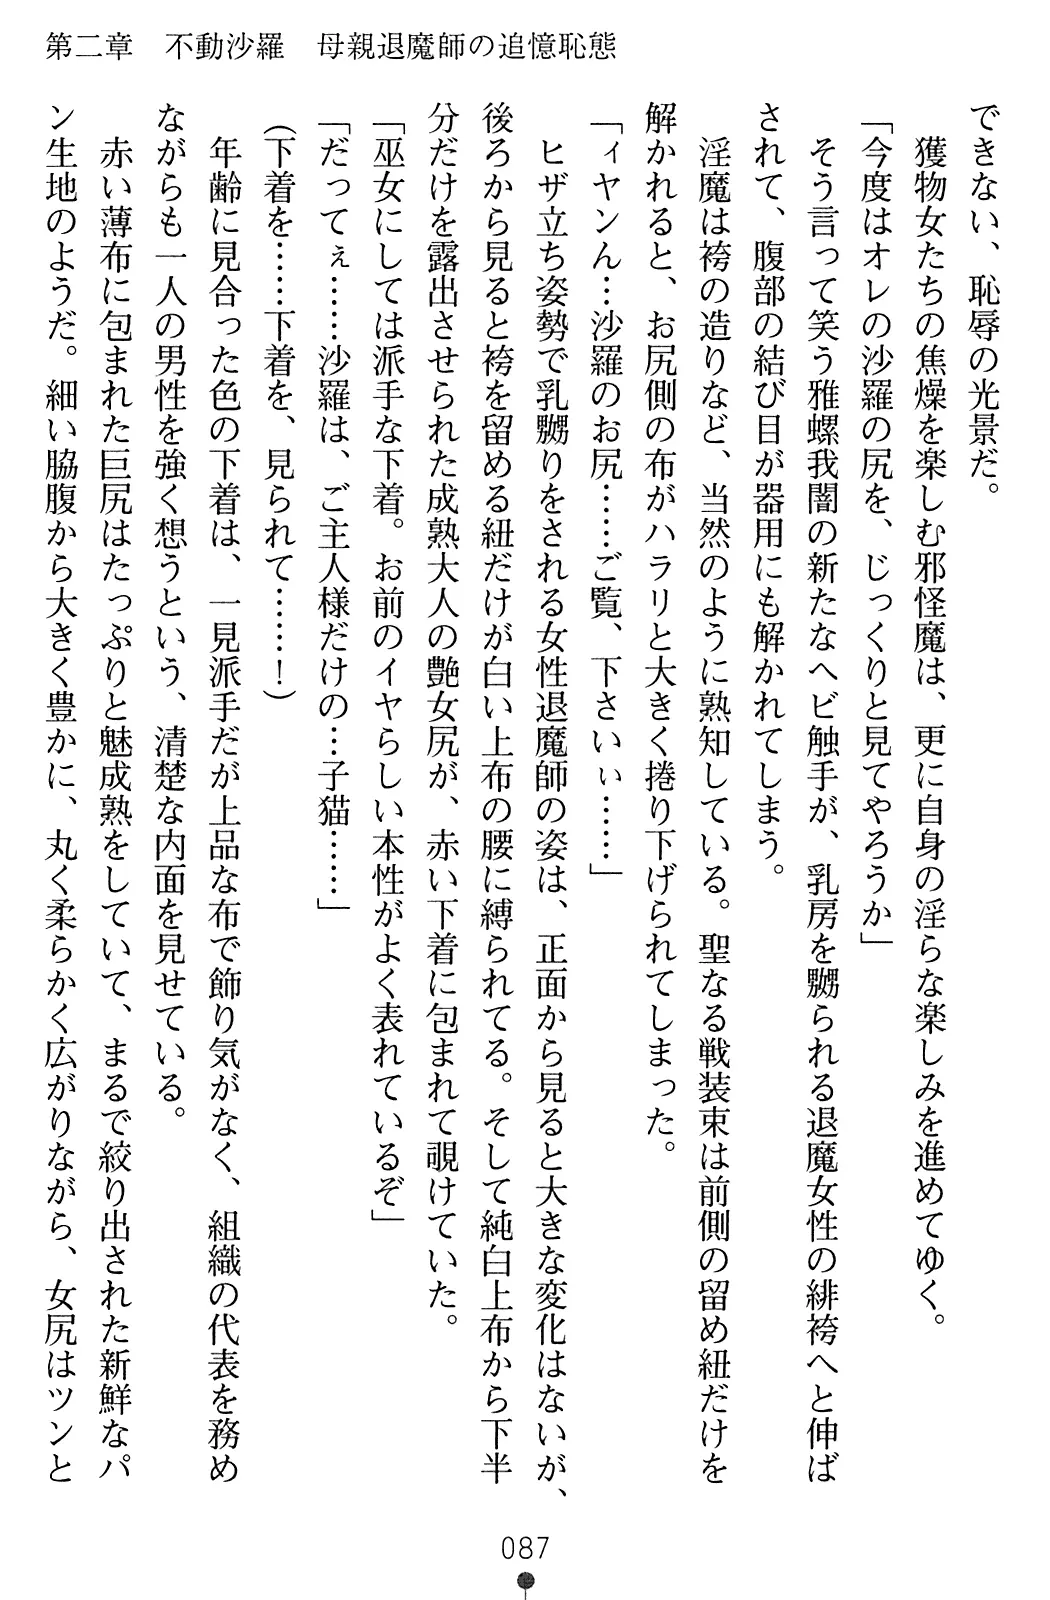 第二章　不動沙羅　母親退魔師の追憶恥態
できない、恥辱の光景だ。
　獲物女たちの焦燥を楽しむ邪怪魔は、更に自身の淫らな楽しみを進めてゆく。
「今度はオレの沙羅の尻を、じっくりと見てやろうか」
　そう言って笑う雅螺我闇の新たなヘビ触手が、乳房を嬲られる退魔女性の緋袴へと伸ば
されて、腹部の結び目が器用にも解かれてしまう。
　淫魔は袴の造りなど、当然のように熟知している。聖なる戦装束は前側の留め紐だけを
解かれると、お尻側の布がハラリと大きく捲り下げられてしまった。
「ィヤンん…沙羅のお尻……ご覧、下さいぃ……」
　ヒザ立ち姿勢で乳嬲りをされる女性退魔師の姿は、正面から見ると大きな変化はないが、
後ろから見ると袴を留める紐だけが白い上布の腰に縛られてる。そして純白上布から下半
分だけを露出させられた成熟大人の艶女尻が、赤い下着に包まれて覗けていた。
「巫女にしては派手な下着。お前のイヤらしい本性がよく表れているぞ」
「だってぇ……沙羅は、ご主人様だけの…子猫……」
（下着を……下着を、見られて……！）
　年齢に見合った色の下着は、一見派手だが上品な布で飾り気がなく、組織の代表を務め
ながらも一人の男性を強く想うという、清楚な内面を見せている。
　赤い薄布に包まれた巨尻はたっぷりと魅成熟をしていて、まるで絞り出された新鮮なパ
ン生地のようだ。細い脇腹から大きく豊かに、丸く柔らかく広がりながら、女尻はツンと
087